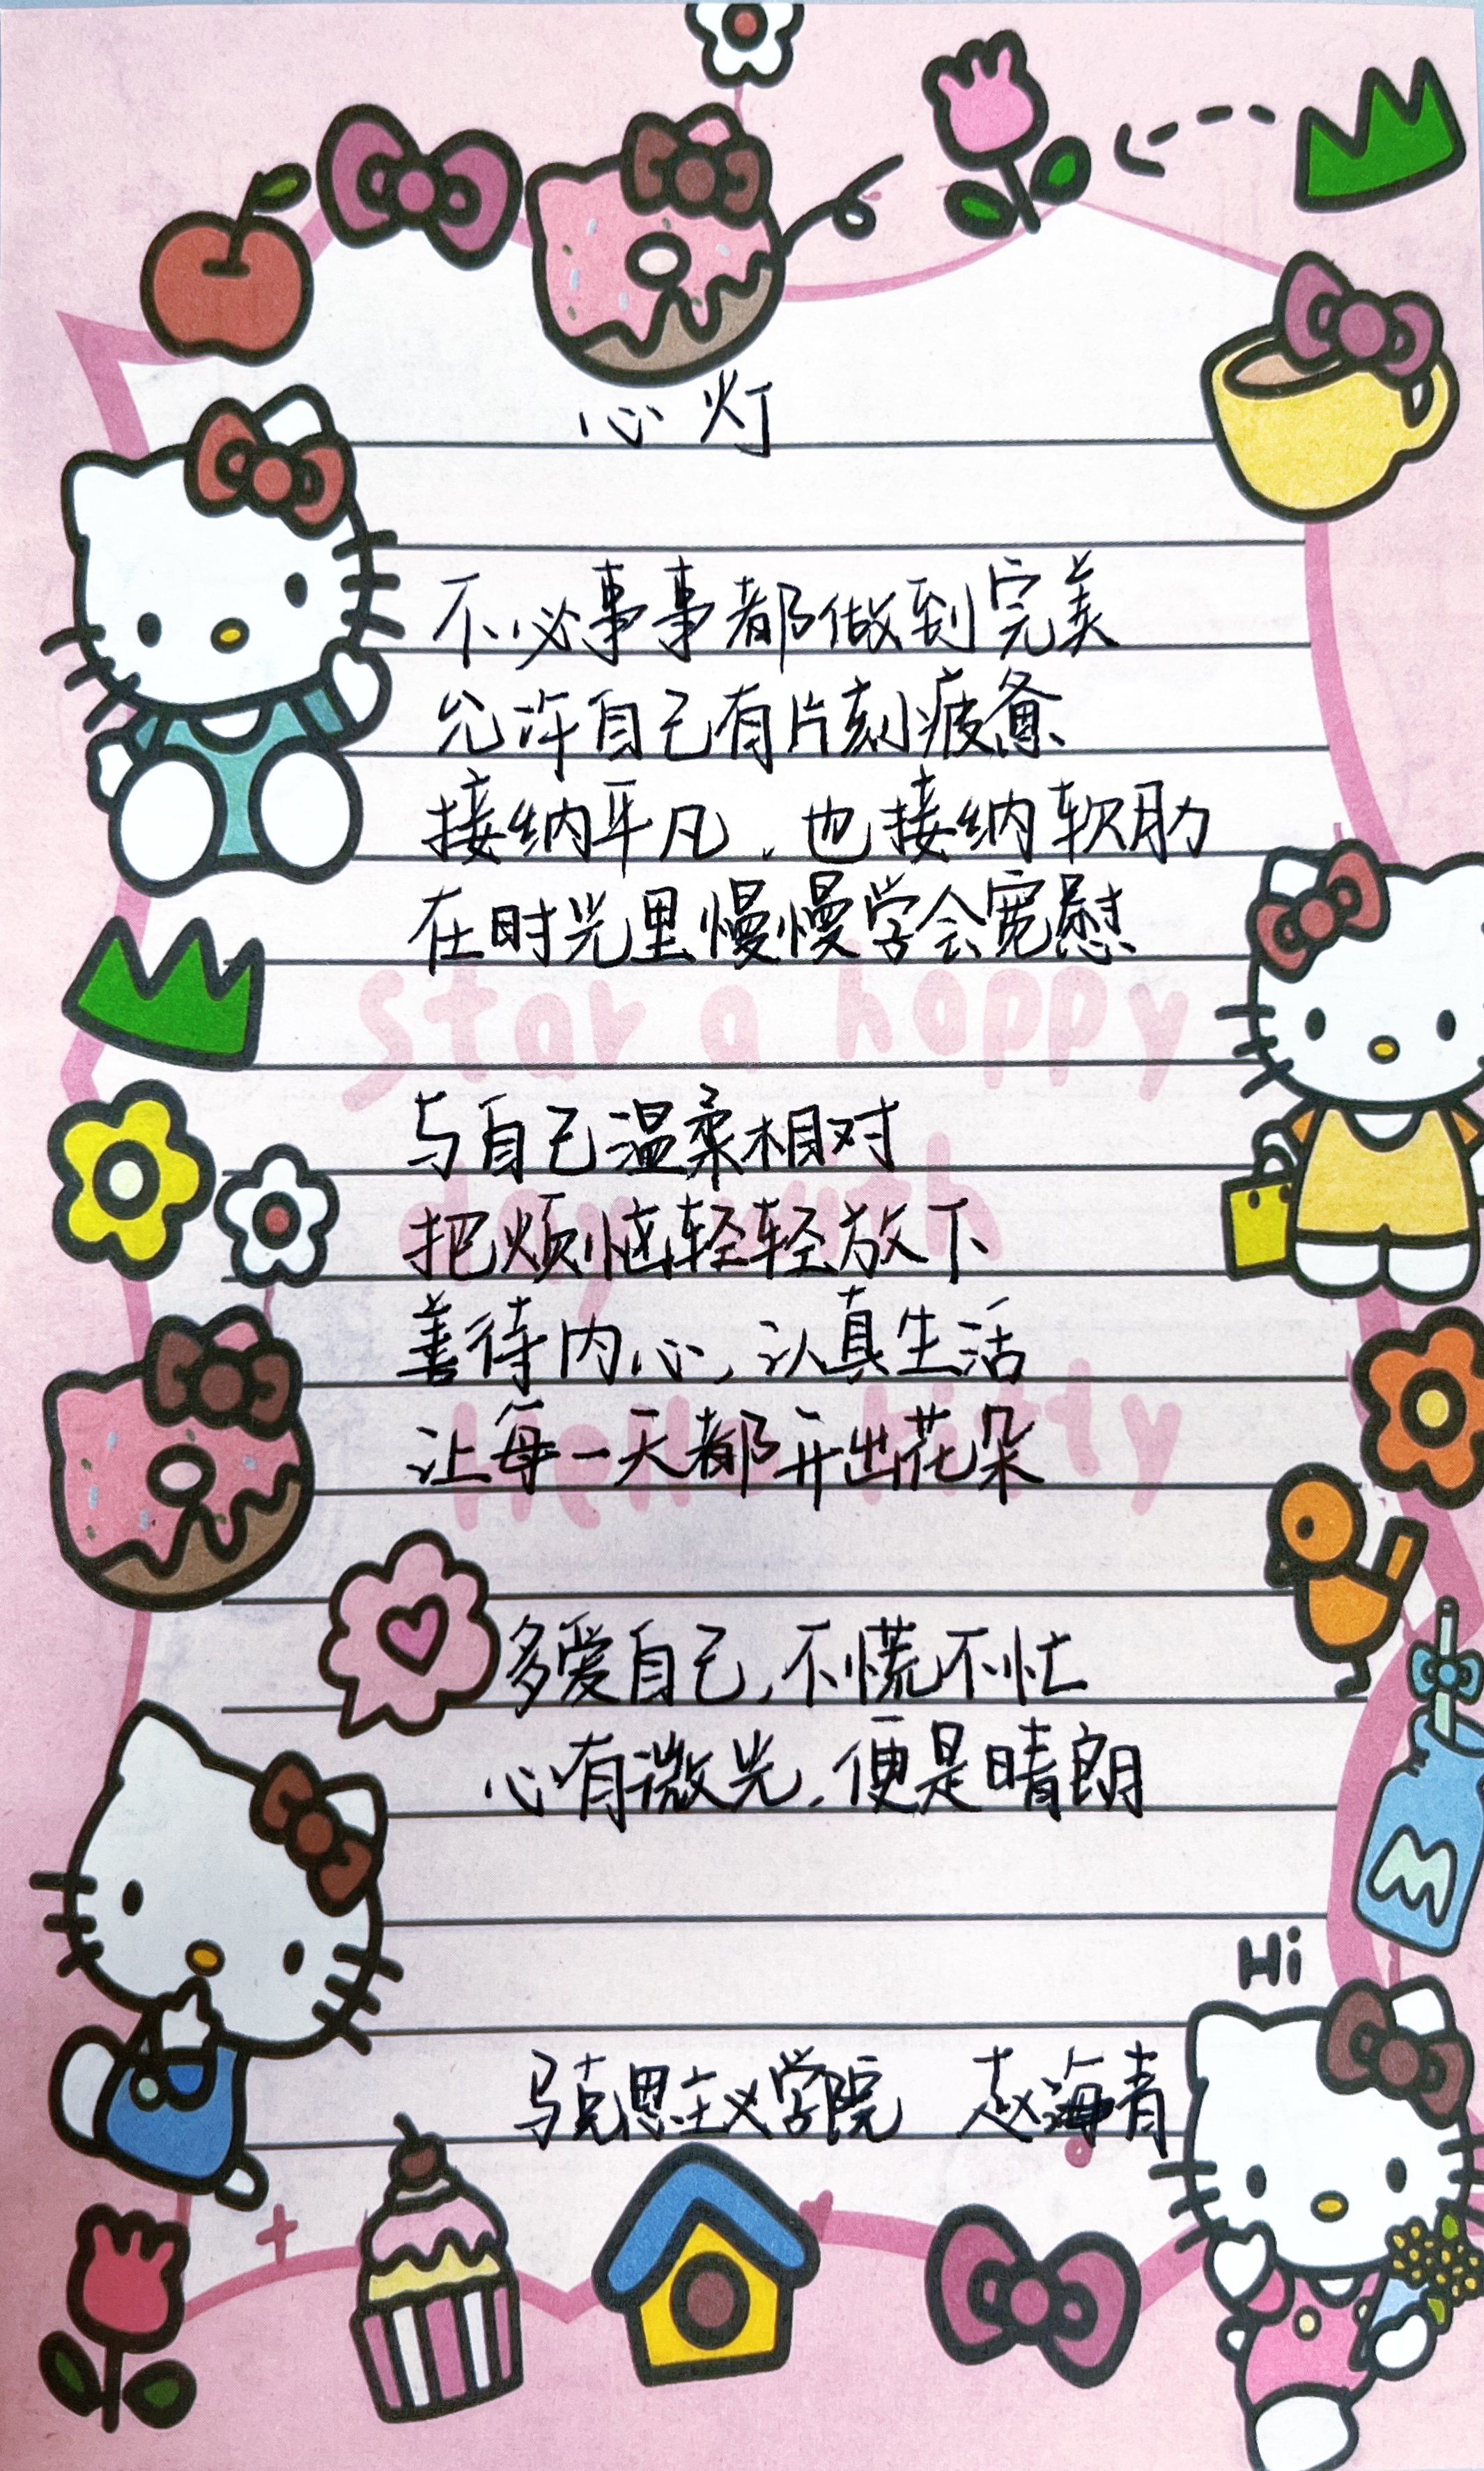 心灯
不必事事都做到完美
允许自己有片刻疲惫
接纳平凡，也接纳软肋
在时光里慢慢学会宽慰
Star a happy
与自己温柔相对
day with
把烦恼轻轻放下
善待内心，认真生活
Hello kitty
让每一天都开出花朵
多爱自己，不慌不忙
心有微光，便是晴朗
Hi
马克思主义学院 赵海青